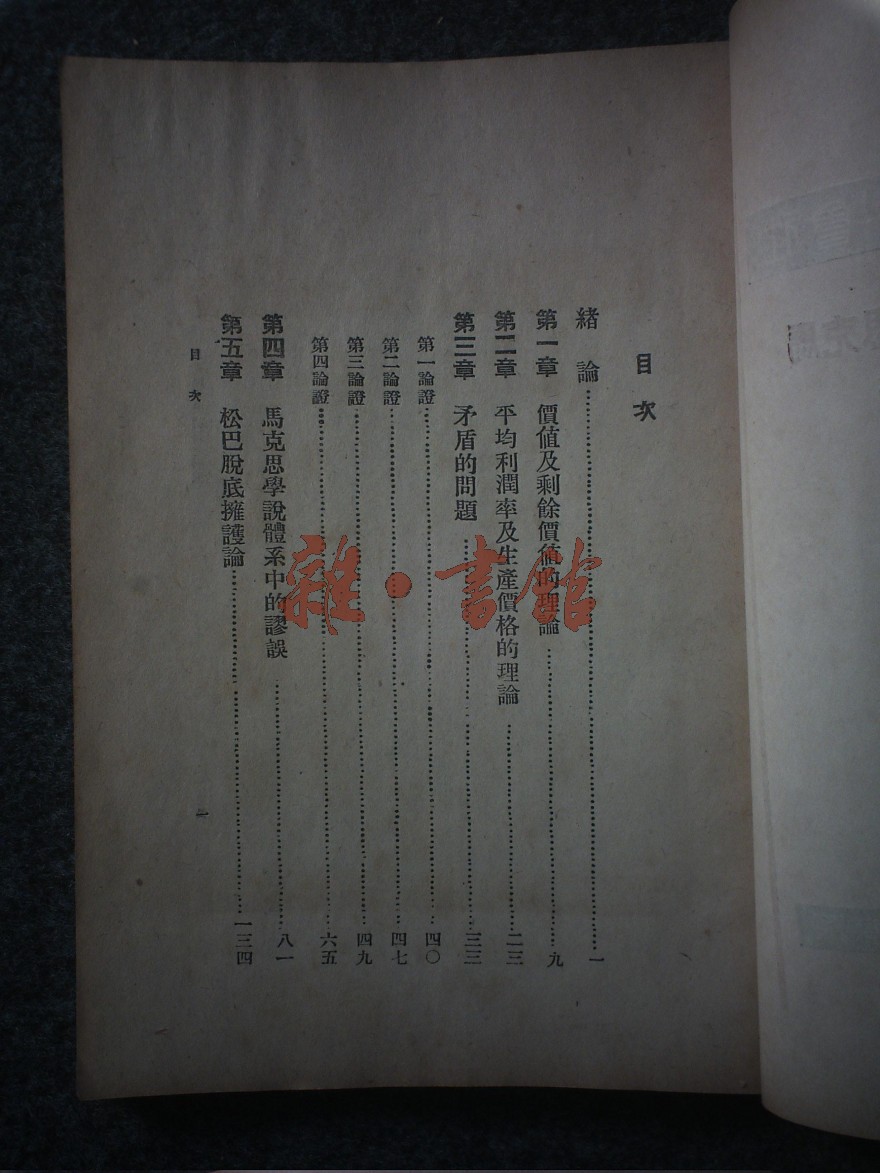 目次
緒論……一
第一章 價值及剩餘價值的理論……九
第二章 平均利潤率及生產價格的理論……二三
第三章 矛盾的問題……三三
第一論證……四〇
第二論證……四七
第三論證……四九
第四論證……六五
第四章 馬克思學說體系中的謬誤……八一
第五章 松巴脫底擁護論……一三四
目次
一
雜·書館